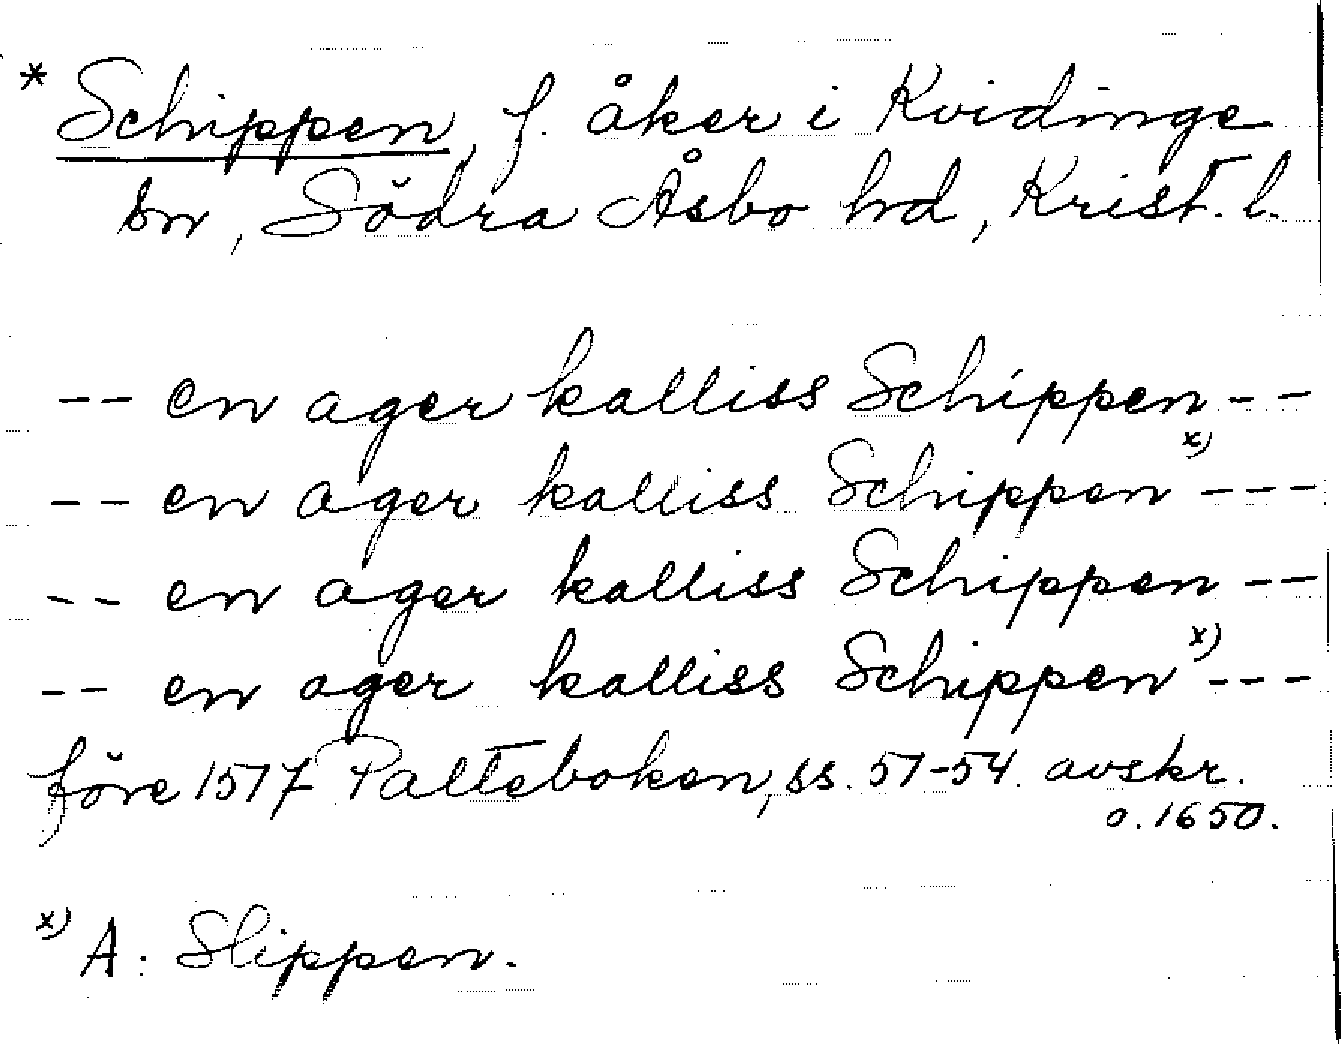 * Schippen, f. åker i Kvidinge
sn, Södra Åsbo hd, Krist. l.
-- en ager kalliss Schippen --
-- en ager kalliss Schippen x) ---
-- en ager kalliss Schippen --
-- en ager kalliss Schippen x) ---
före 1517 Palteboken, ss. 51-54. avskr.
o. 1650.
x) A: Slippen.